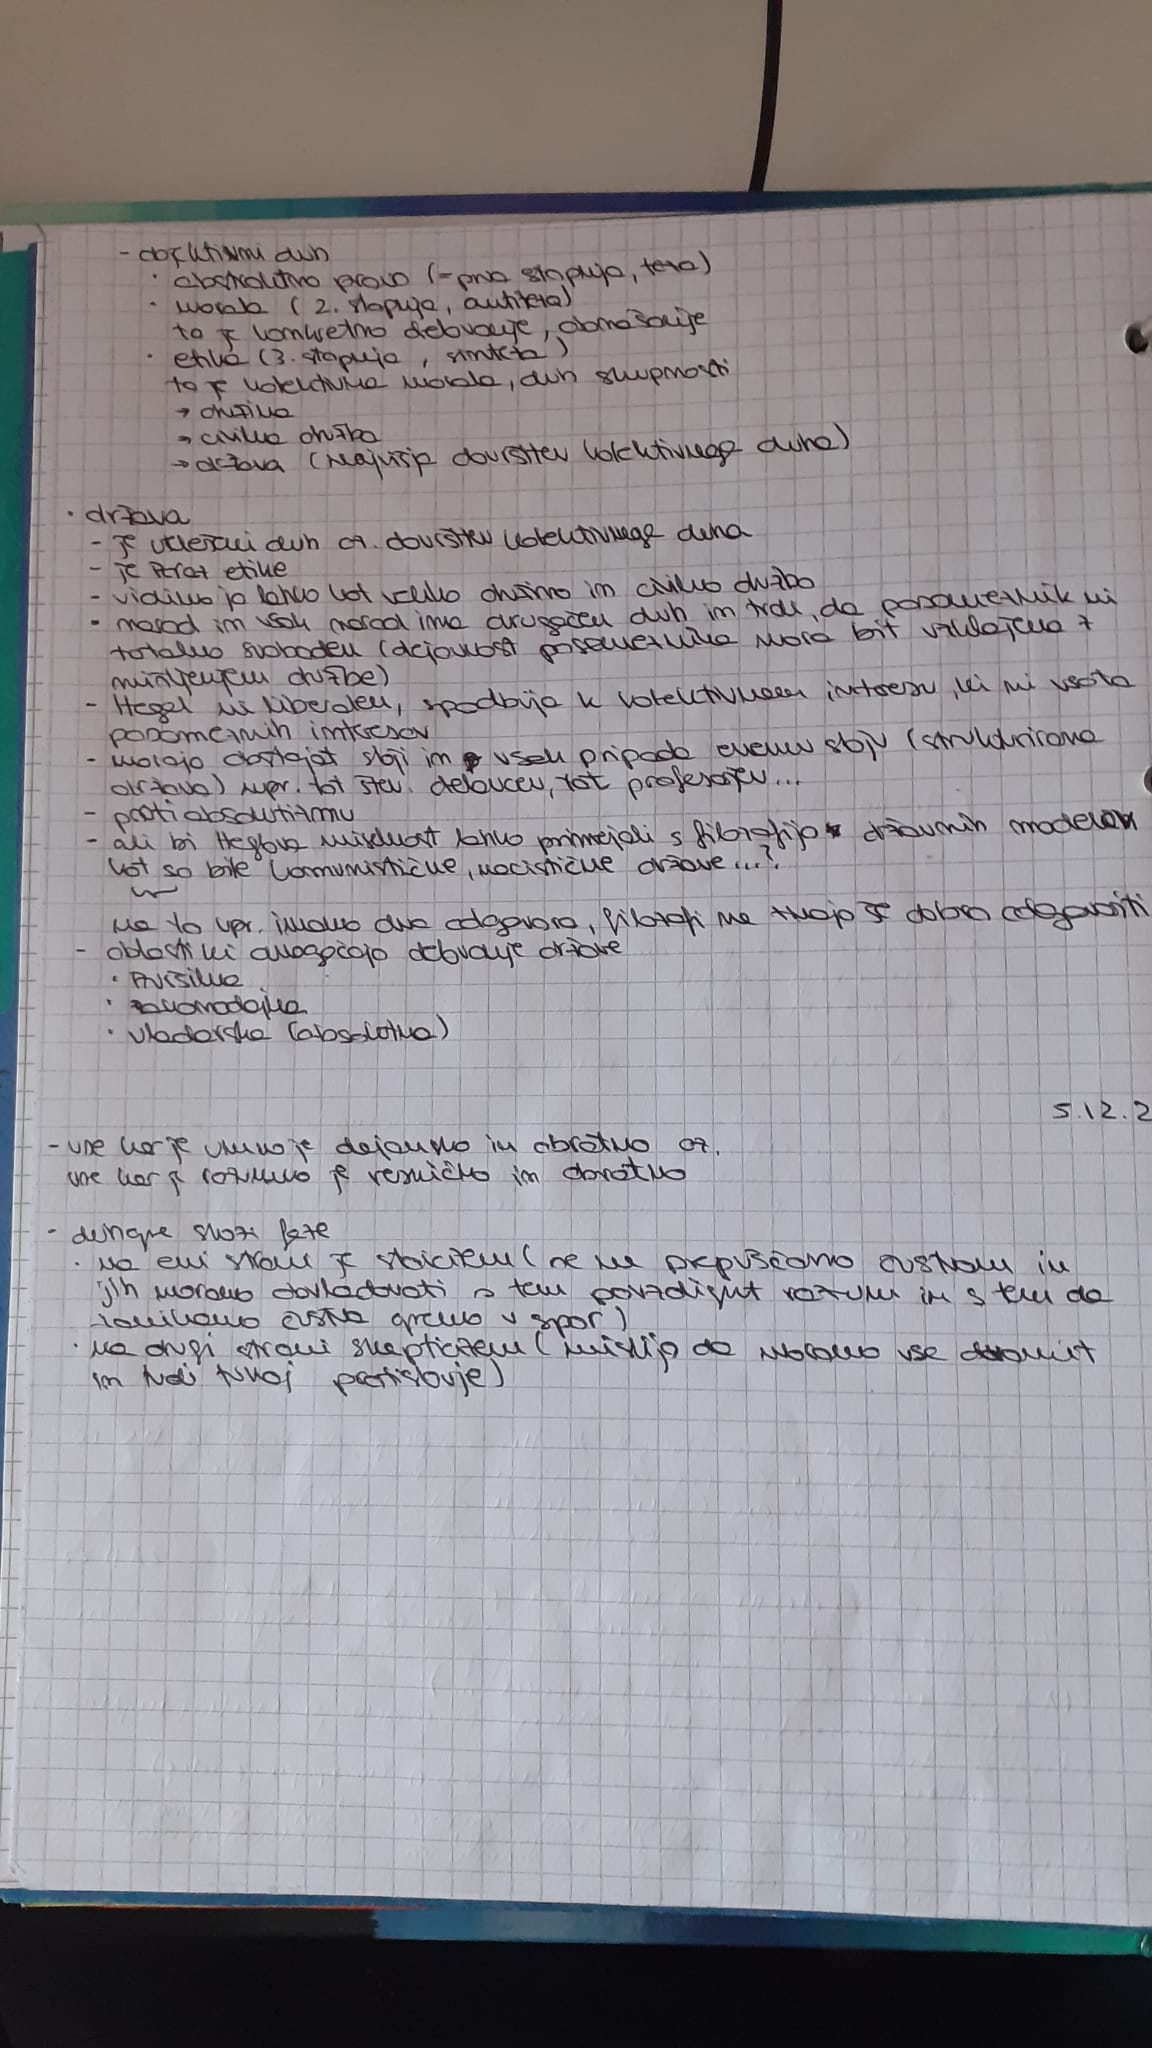 - objektivni duh
· abstraktno pravo (=prva stopnja, teza)
· morala (2. stopnja, antiteza)
to je konkretno delovanje, obnašanje
· etika (3. stopnja, sinteza)
to je kolektivna morala, duh skupnosti
→ družina
→ civilna družba
→ država (najvišje dovršitev kolektivnega duha)
· država
- je utelešeni duh oz. dovršitev kolektivnega duha
- je etike
- vidimo jo lahko kot veliko družino in civilno družbo
- narod in vsak narod ima drugačen duh in trdi, da posameznik ni
totalno svoboden (dejavnost posameznika mora bit usklajena z
mišljenjem družbe)
- Hegel ni liberalen, spodbija k kolektivnem interesu, ki ni vsota
posameznih interesov
- morajo obstajat sloji in v vsak pripada enemu sloju (strukturirana
država) npr. tot štev. delavcev, tot profesorjev...
- proti absolutizmu
- ali bi Heglova miselnost lahko primerjali s filozofijo državnih modelov
kot so bile komunistične, nacistične države...?
na to vpr. imamo dva odgovora, filozofi ne znajo še dobro odgovoriti
- oblasti ki omogočajo delovanje države
· izvršilna
· zakonodajna
· vladarska (absolutna)
5.12.2
- vse kar je umno je dejansko in obratno oz.
vse kar je razumno je resnično in obratno
- duh gre skozi faze
· na eni strani je stoicizem (se ne prepuščamo čustvom in
jih moramo obvladovati s tem povzdignit razum in s tem da
zanikamo čustva gremo v spor)
· na drugi strani skepticizem (mislijo da moramo vse dvomit
in tudi tukaj protislovje)